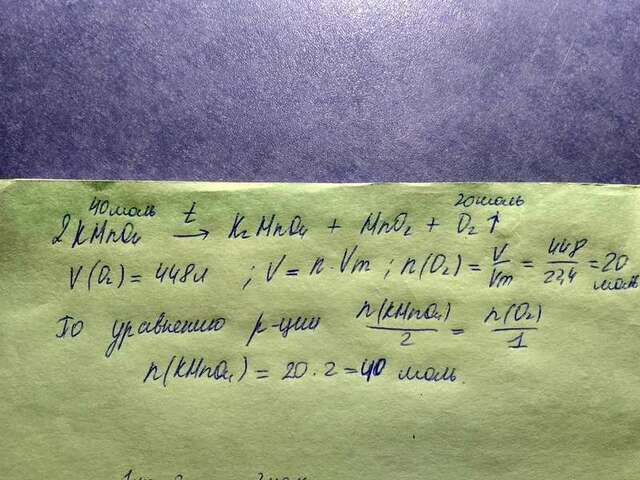 40 моль 20 моль
2KMnO4 t → K2MnO4 + MnO2 + O2 ↑
V(O2) = 448л ; V = n · Vm ; n(O2) = V/Vm = 448/22,4 = 20 моль
По уравнению р-ции n(KMnO4)/2 = n(O2)/1
n(KMnO4) = 20 · 2 = 40 моль.